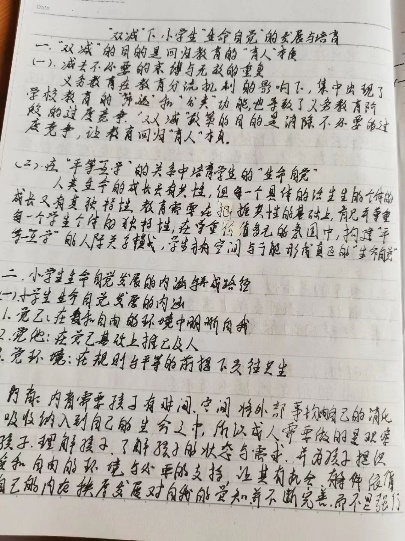 "双减"下小学生"生命自觉"的发展与培育
一、"双减"的目的是回归教育的"育人"本质
(一)、减去不必要的束缚与无效的重负
义务教育在教育分流机制的影响下,集中出现了
学校教育的"筛选"和"分类"功能也导致了义务教育阶
段的过度竞争,"双减"政策的目的是消除不必要的过
度竞争,让教育回归"育人"本真。
(二)在"平等互学"的关系中培育学生的"生命自觉"
人类生命的成长具有共性,但每一个具体的活生生的个体的
成长又有其独特性,教育需要在把握共性的基础上,有见并尊重
每一个学生个体的独特性,在尊重价值多元的氛围中,构建"平
等互学"的人际关系模式,学生才有空间与可能形成真正的"生命自觉"
二、小学生生命自觉发展的内涵与养成路径
(一)小学生生命自觉发展的内涵
1.觉己:在宽和自由的环境中明晰自我
2.觉他:在觉己基础上推己及人
3.觉环境:在规则与平等的前提下交往共生
内省需要孩子有时间、空间将外部事物自己的消化
吸收纳入到自己的生命之中,所以成人需要做的是观察
孩子、理解孩子、了解孩子的状态与需求,并为孩子提供
宽和自由的环境与必要的支持,让其有机会
自己的内在秩序发展对自我的觉知并不断完善,而不是强行